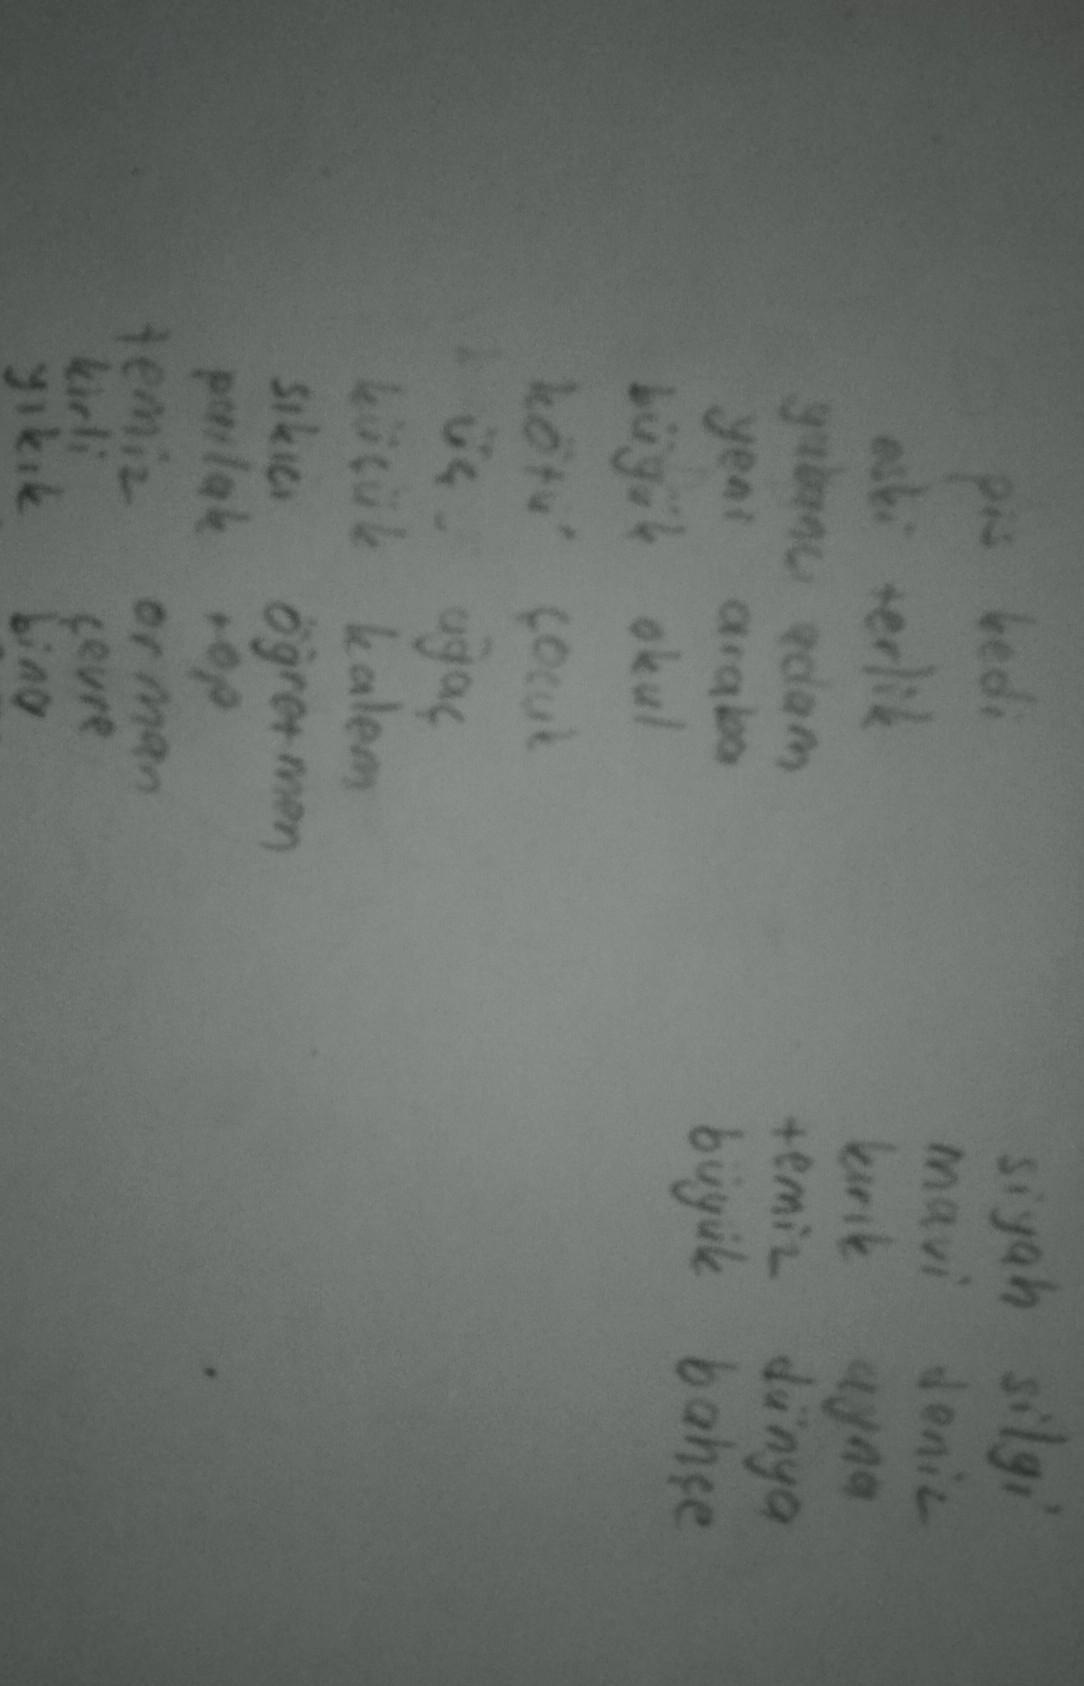 pis kedi
eski terlik
yabancı adam
yeni araba
büyük okul
kötü çocuk
üç ağaç
küçük kalem
sıkıcı öğretmen
parlak top
temiz orman
kirli çevre
yıkık bina
siyah silgi
mavi deniz
kırık ayna
temiz dünya
büyük bahçe